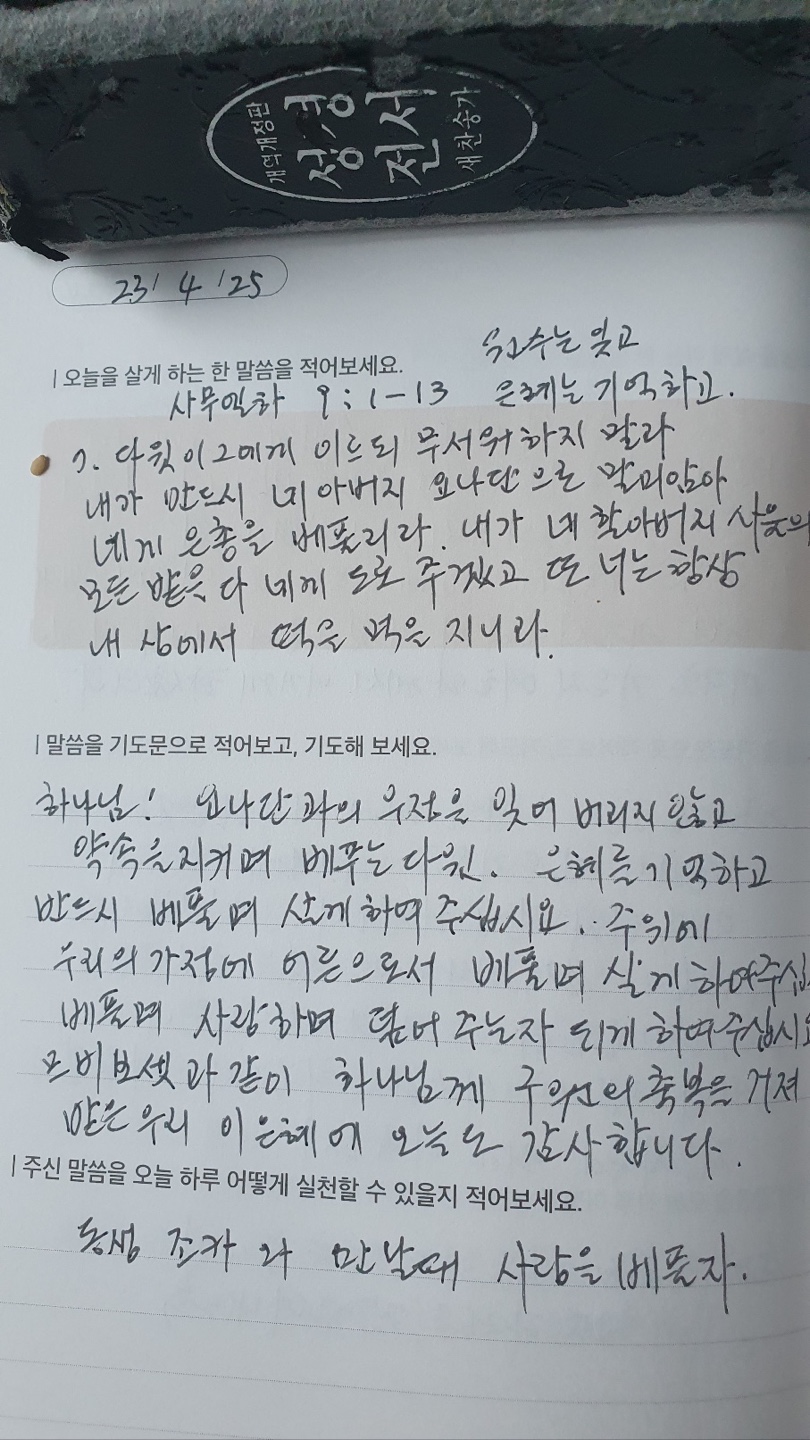 개역개정판
성경
전서
새찬송가
23 / 4 / 25
원수는 잊고
| 오늘을 살게 하는 한 말씀을 적어보세요.
사무엘하 9 : 1 - 13 은혜는 기억하고.
7. 다윗이 그에게 이르되 무서워하지 말라
내가 반드시 네 아버지 요나단으로 말미암아
네게 은총을 베풀리라. 내가 네 할아버지 사울의
모든 밭을 다 네게 도로 주겠고 또 너는 항상
내 상에서 떡을 먹을 지니라.
| 말씀을 기도문으로 적어보고, 기도해 보세요.
하나님! 요나단과의 우정을 잊어 버리지 않고
약속을 지키며 베푸는 다윗. 은혜를 기억하고
반드시 베풀며 살게 하여 주십시요.. 주위에
우리의 가정에 어른으로서 베풀며 살게 하여주십
베풀며 사랑하며 덮어 주는자 되게 하여주십시요
므비보셋과 같이 하나님께 구원의 축복을 거져
받은 우리 이 은혜에 오늘도 감사합니다.
| 주신 말씀을 오늘 하루 어떻게 실천할 수 있을지 적어보세요.
동생 조카와 만날때 사랑을 베풀자.